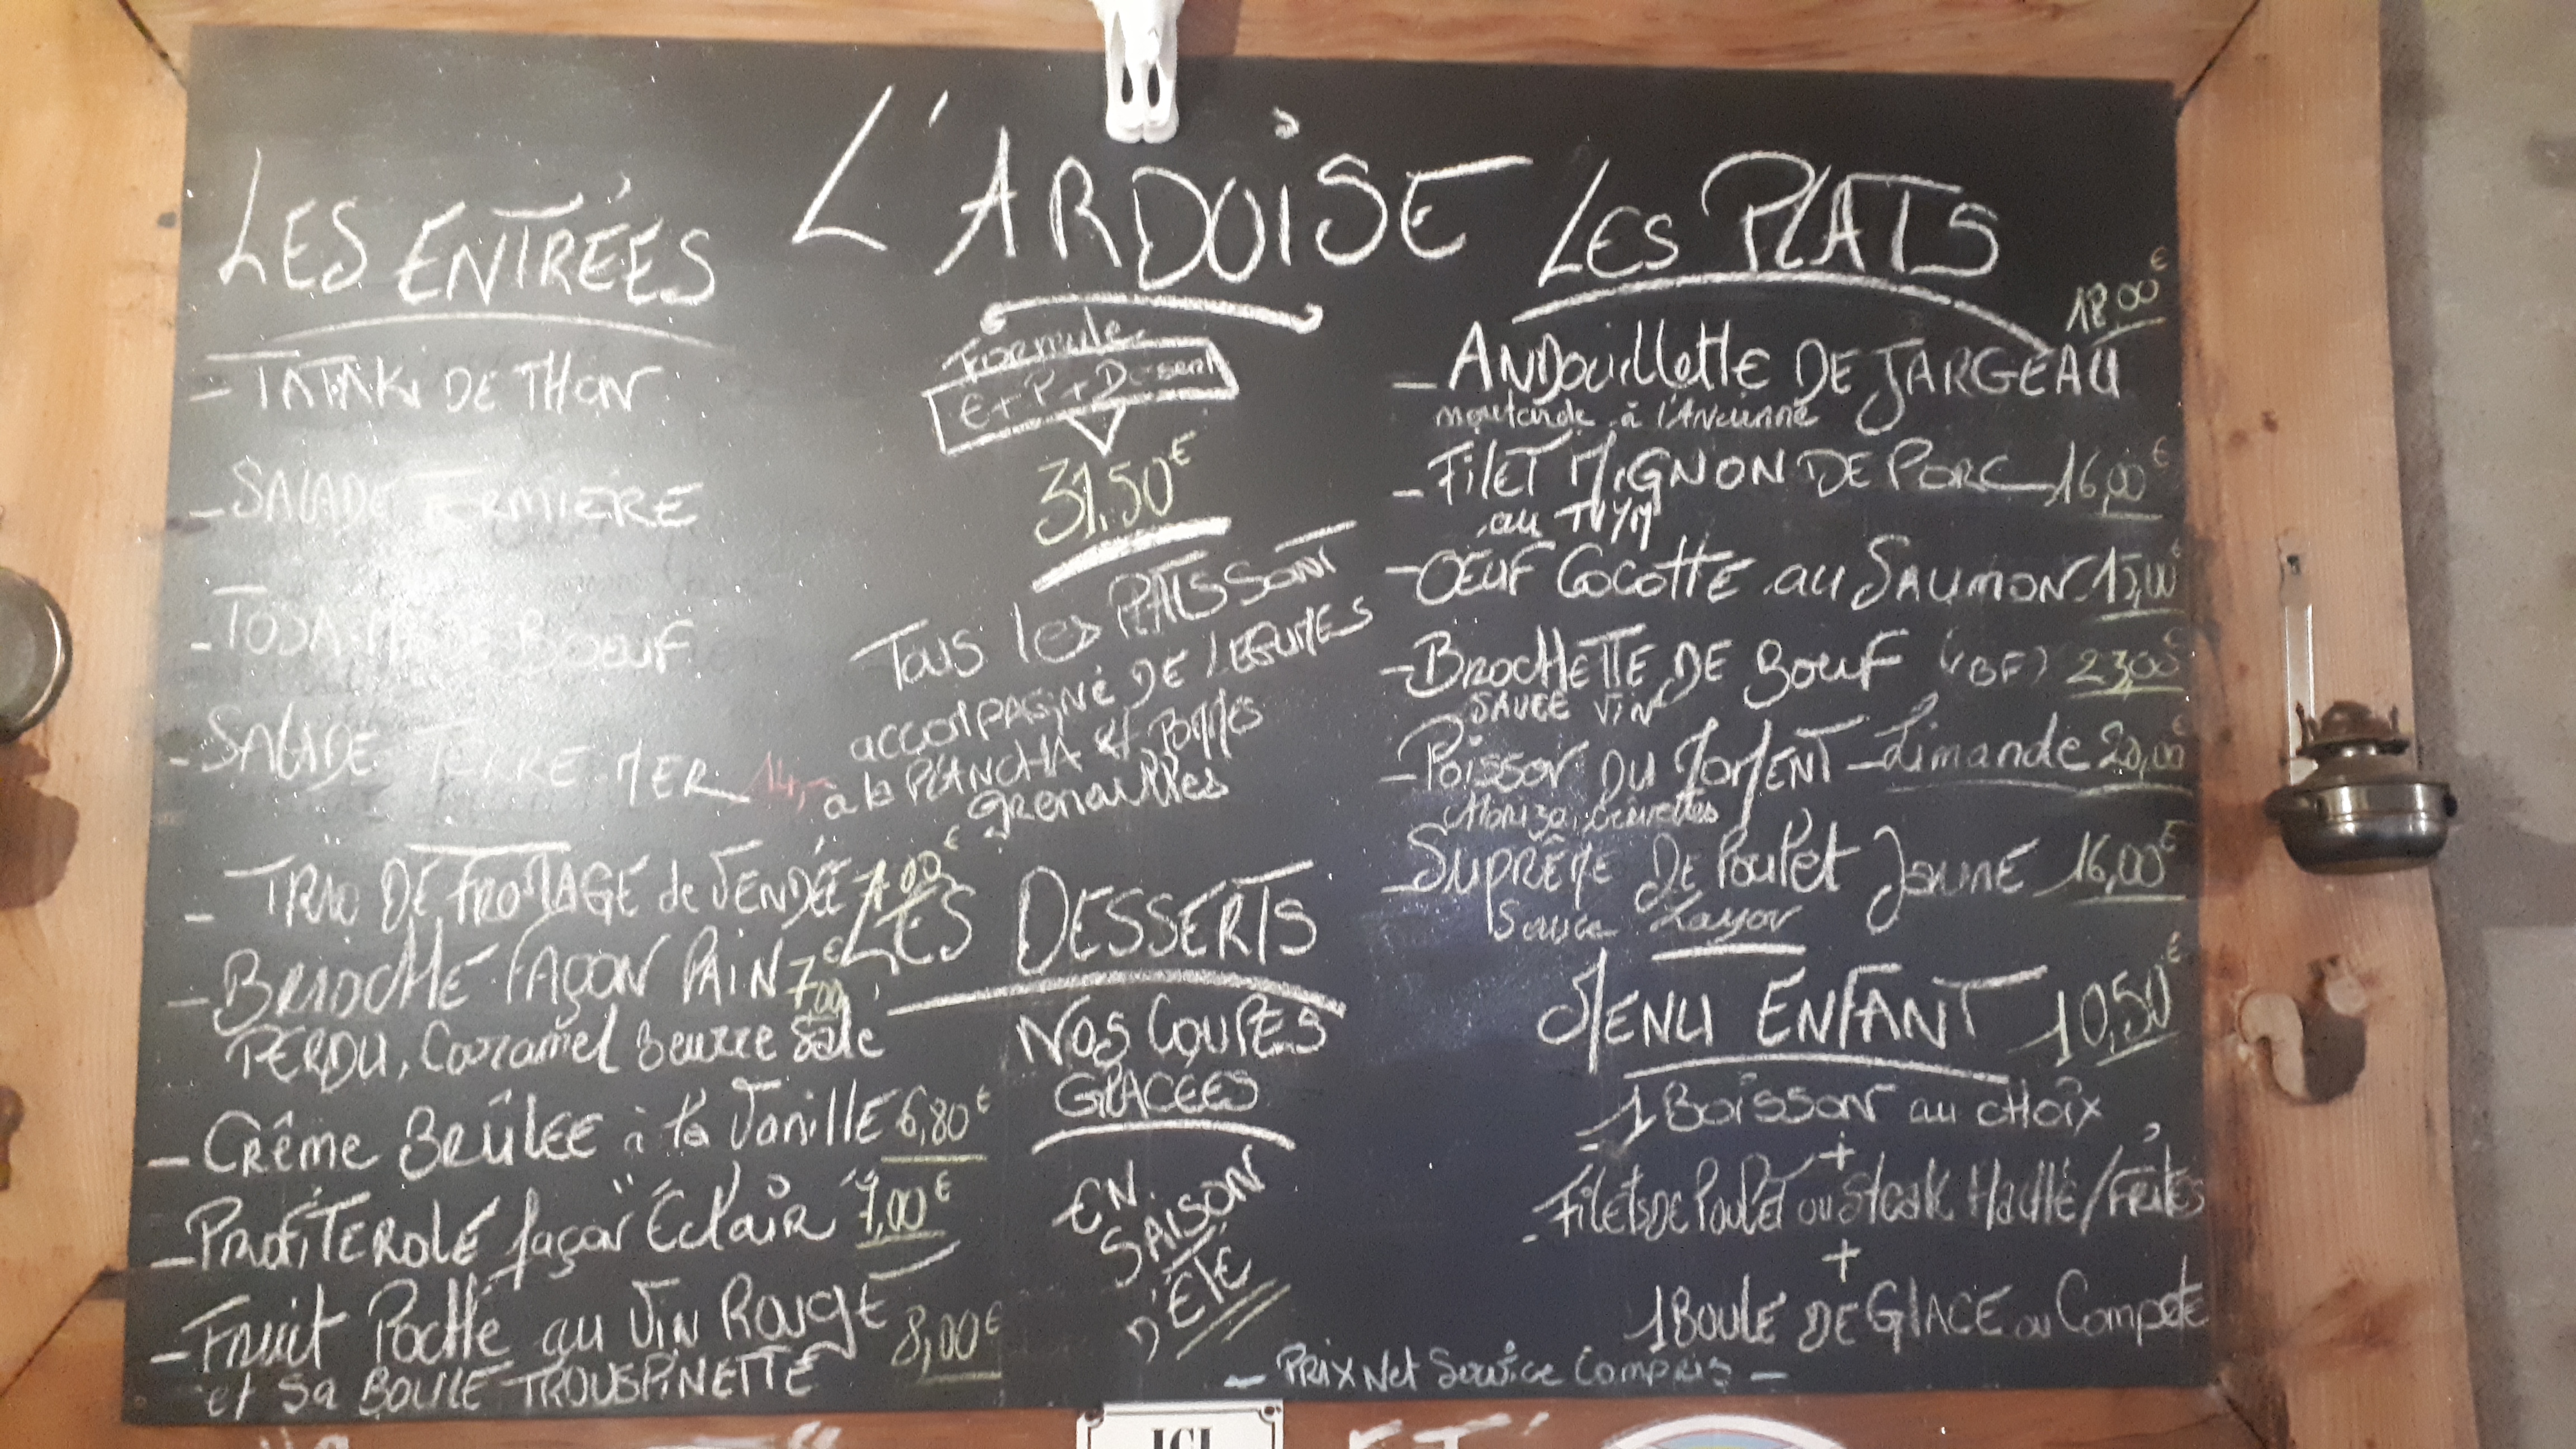 L'ARDOISE
LES ENTRÉES
- TATAKI DE THON
- SALADE FERMIÈRE
- BOEUF
- SALADE TERRE-MER 14,-
Formule
E+P+Dessert
31,50€
TOUS les PLATS SONT
accomPAGNÉ DE LEGUMES
a la PLANCHA et
grenailles
LES PLATS
18,00€
- ANDouillette DE JARGEAU
moutarde à l'Ancienne
- FILET MIGNON DE PORC 16,00€
au THYM
- OEUF COCOTTE au SAUMON 15,00€
- BROCHETTE DE BOEUF (VBF) 23,00€
SAUCE VIN
- POISSON DU MOMENT - Limande 20,00€
Chorizo, Crevettes
- SUPRÊME DE Poulet JAUNE 16,00€
Sauce Layon
LES DESSERTS
- TRIO DE FROMAGE de VENDÉE 7.00€
- BRIOCHE FAÇON PAIN 7,00€
PERDU, Caramel Beurre Salé
- Crême BRÛLEE à la Vanille 6,80€
- PROFITEROLE façon "Éclair" 7,00€
- FRUIT POCHÉ au VIN ROUGE 8,00€
et Sa BOULE TROUSPINETTE
NOS COUPES
GLACEES
EN
SAISON
D'ÉTÉ
MENU ENFANT 10,50€
- 1 BOISSON au CHOIX
+
- Filets DE Poulet ou Steak Haché/FRITES
+
1 BOULE DE GLACE ou Compote
- PRIX Net Service Compris -
ICI